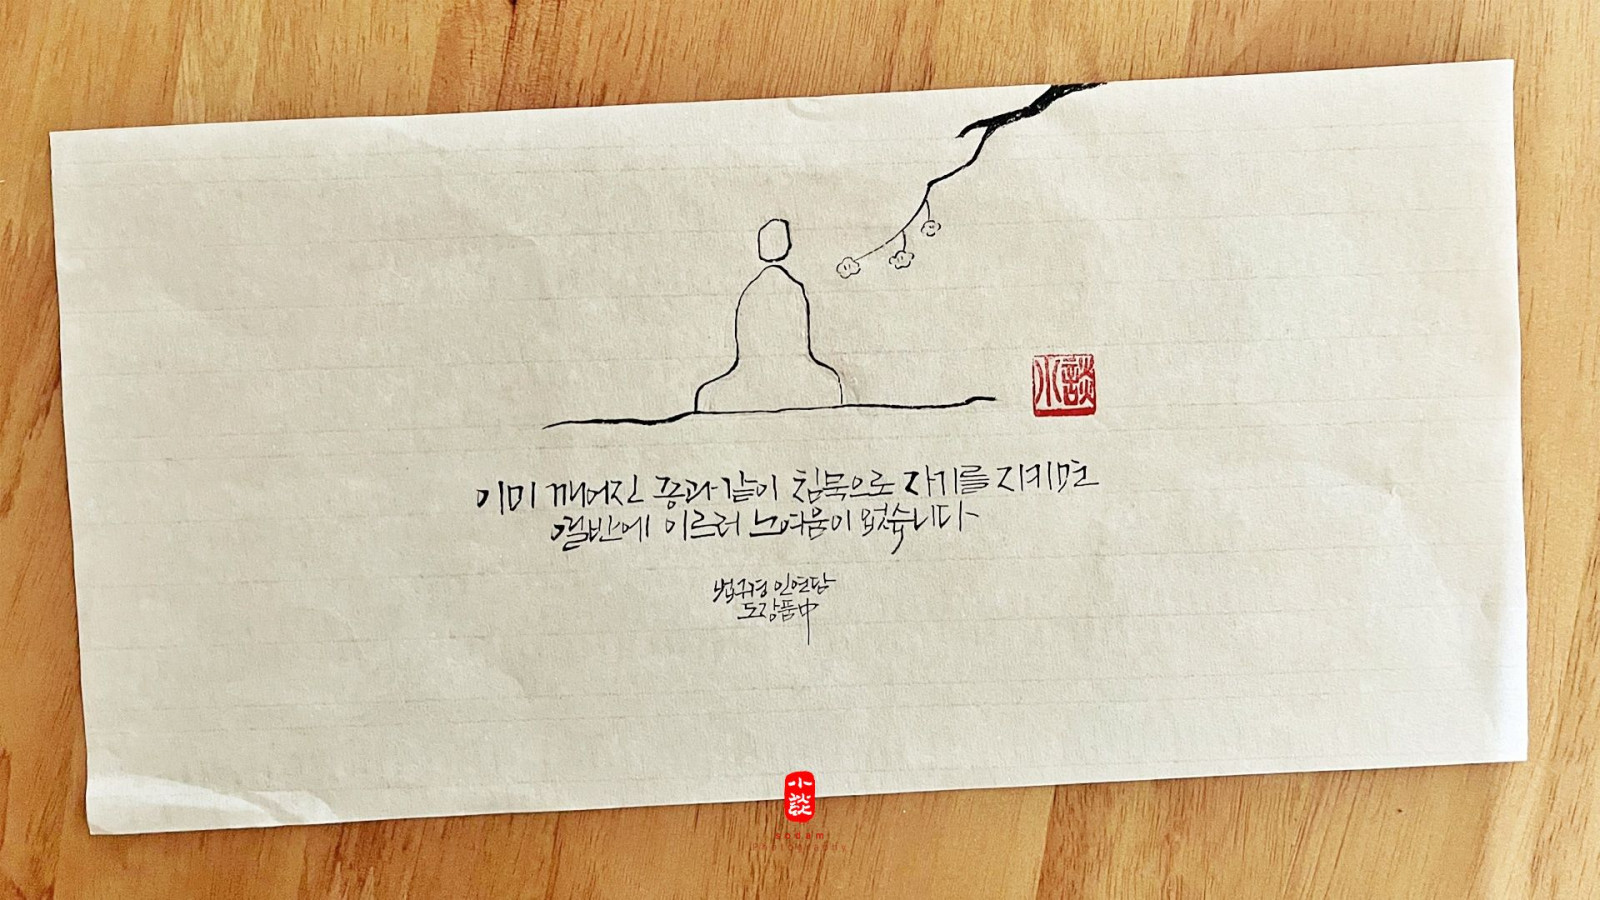 小談
이미 깨어진 종과 같이 침묵으로 자기를 지키면
열반에 이르러 노여움이 없습니다
법구경 인연담
도장품中
小談
sodam
Photography